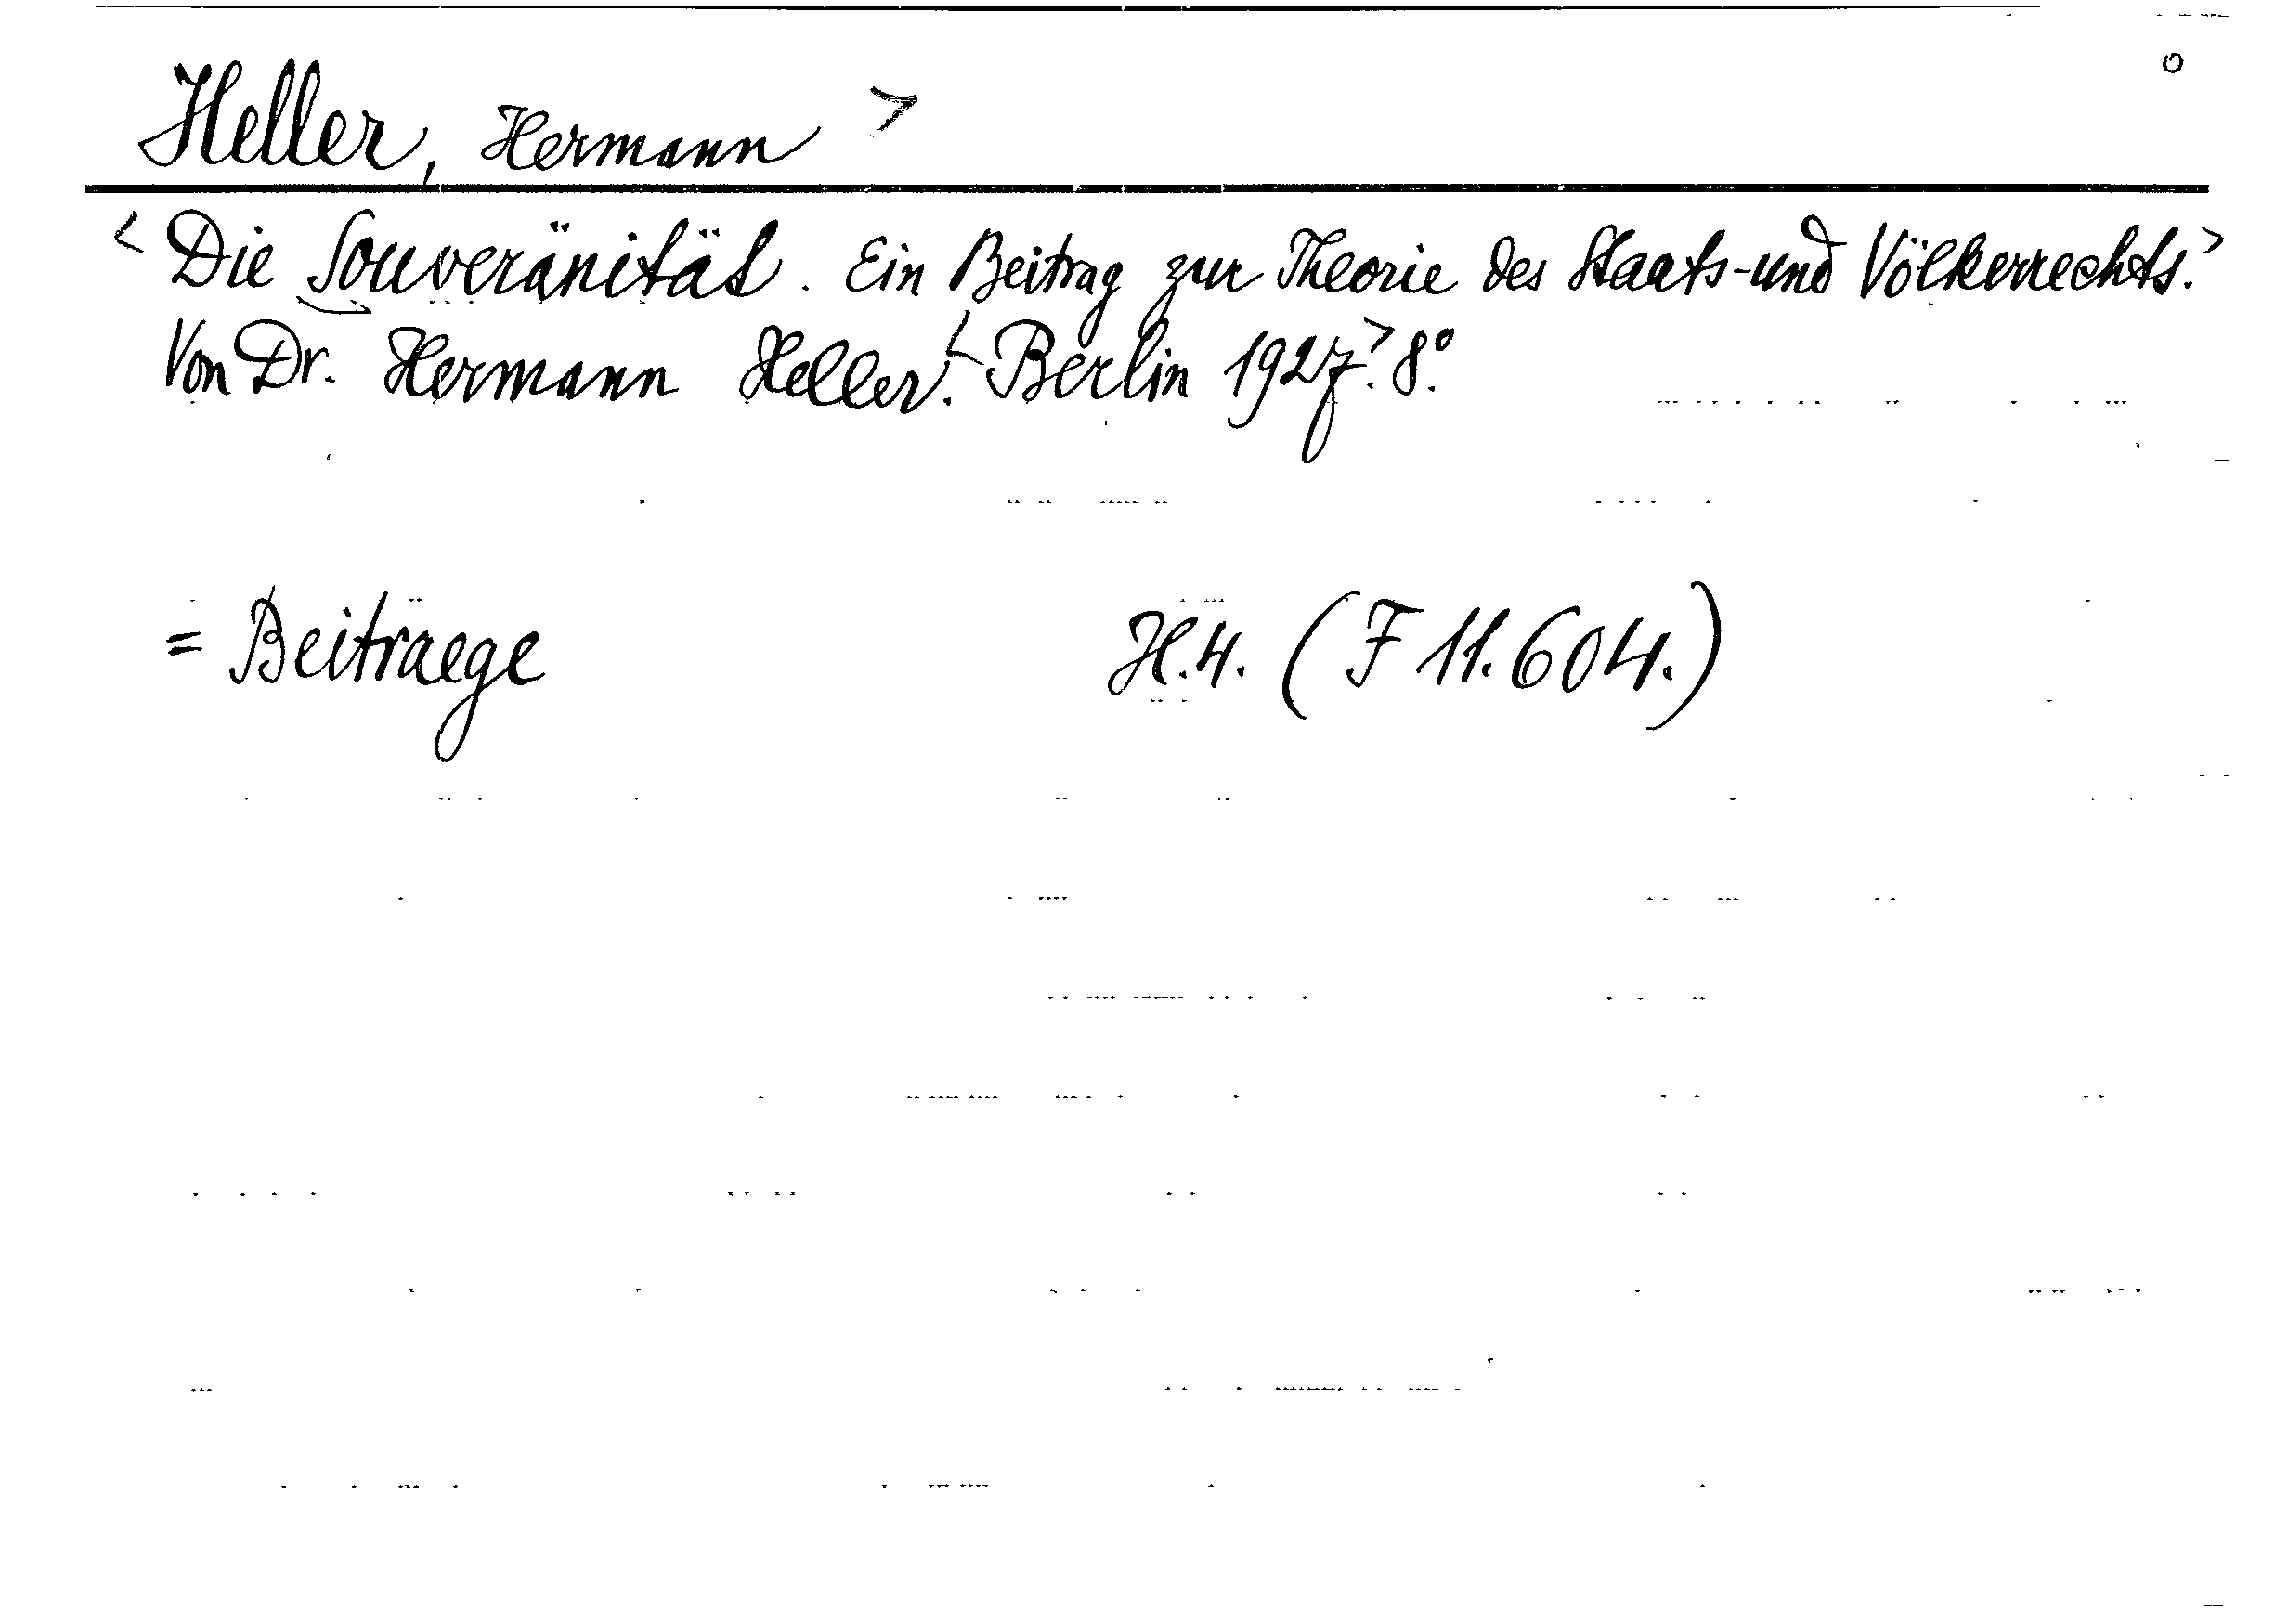 Heller, Hermann >
< Die Souveränität. Ein Beitrag zur Theorie des Staats-und Völkerrechts.>
Von Dr. Hermann Heller. < Berlin 1927.> 8.°
= Beitraege H.4. (F 11.604.)